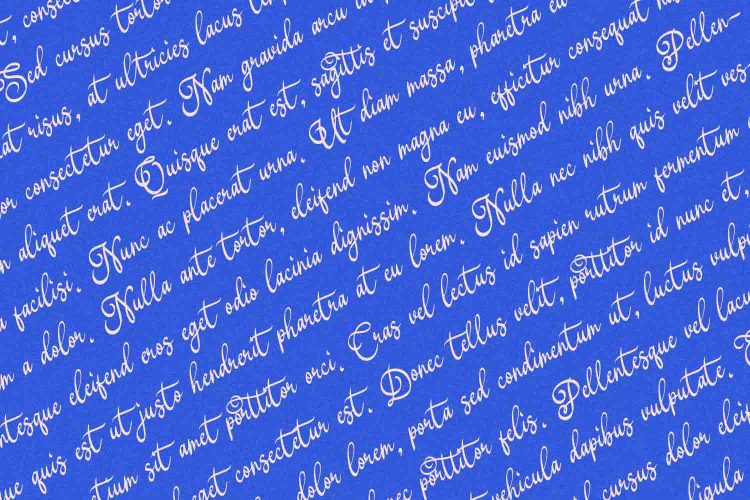 , consec
Sed cursus tortor
at risus, at ultricies lacus tem
or consectetur eget. Nam gravida arcu ac
n aliquet erat. Quisque erat est, sagittis et suscipit
a facilisi. Nunc ac placerat urna. Ut diam massa, pharetra eu
m a dolor. Nulla ante tortor, eleifend non magna eu, efficitur consequat
ntesque eleifend eros eget odio lacinia dignissim. Nam euismod nibh urna. Pellen-
ue quis est ut justo hendrerit pharetra at eu lorem. Nulla nec nibh quis velit ves
tium sit amet porttitor orci. Cras vel lectus id sapien rutrum fermentum
eget consectetur est. Donec tellus velit, porttitor id nunc et,
dolor lorem, porta sed condimentum ut, luctus vulp
nec porttitor felis. Pellentesque vel lacu
vehicula dapibus vulputate.
cursus dolor eleif
ligula